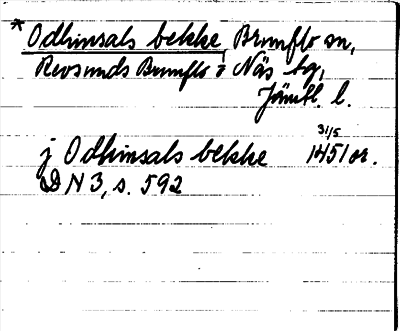 * Odhinsals bekke, Brunflo sn,
Revsunds Brunflo o Näs tg,
Jämtl. l.
j Odhinsals bekke 31/5 1451 or.
DN 3, s. 592